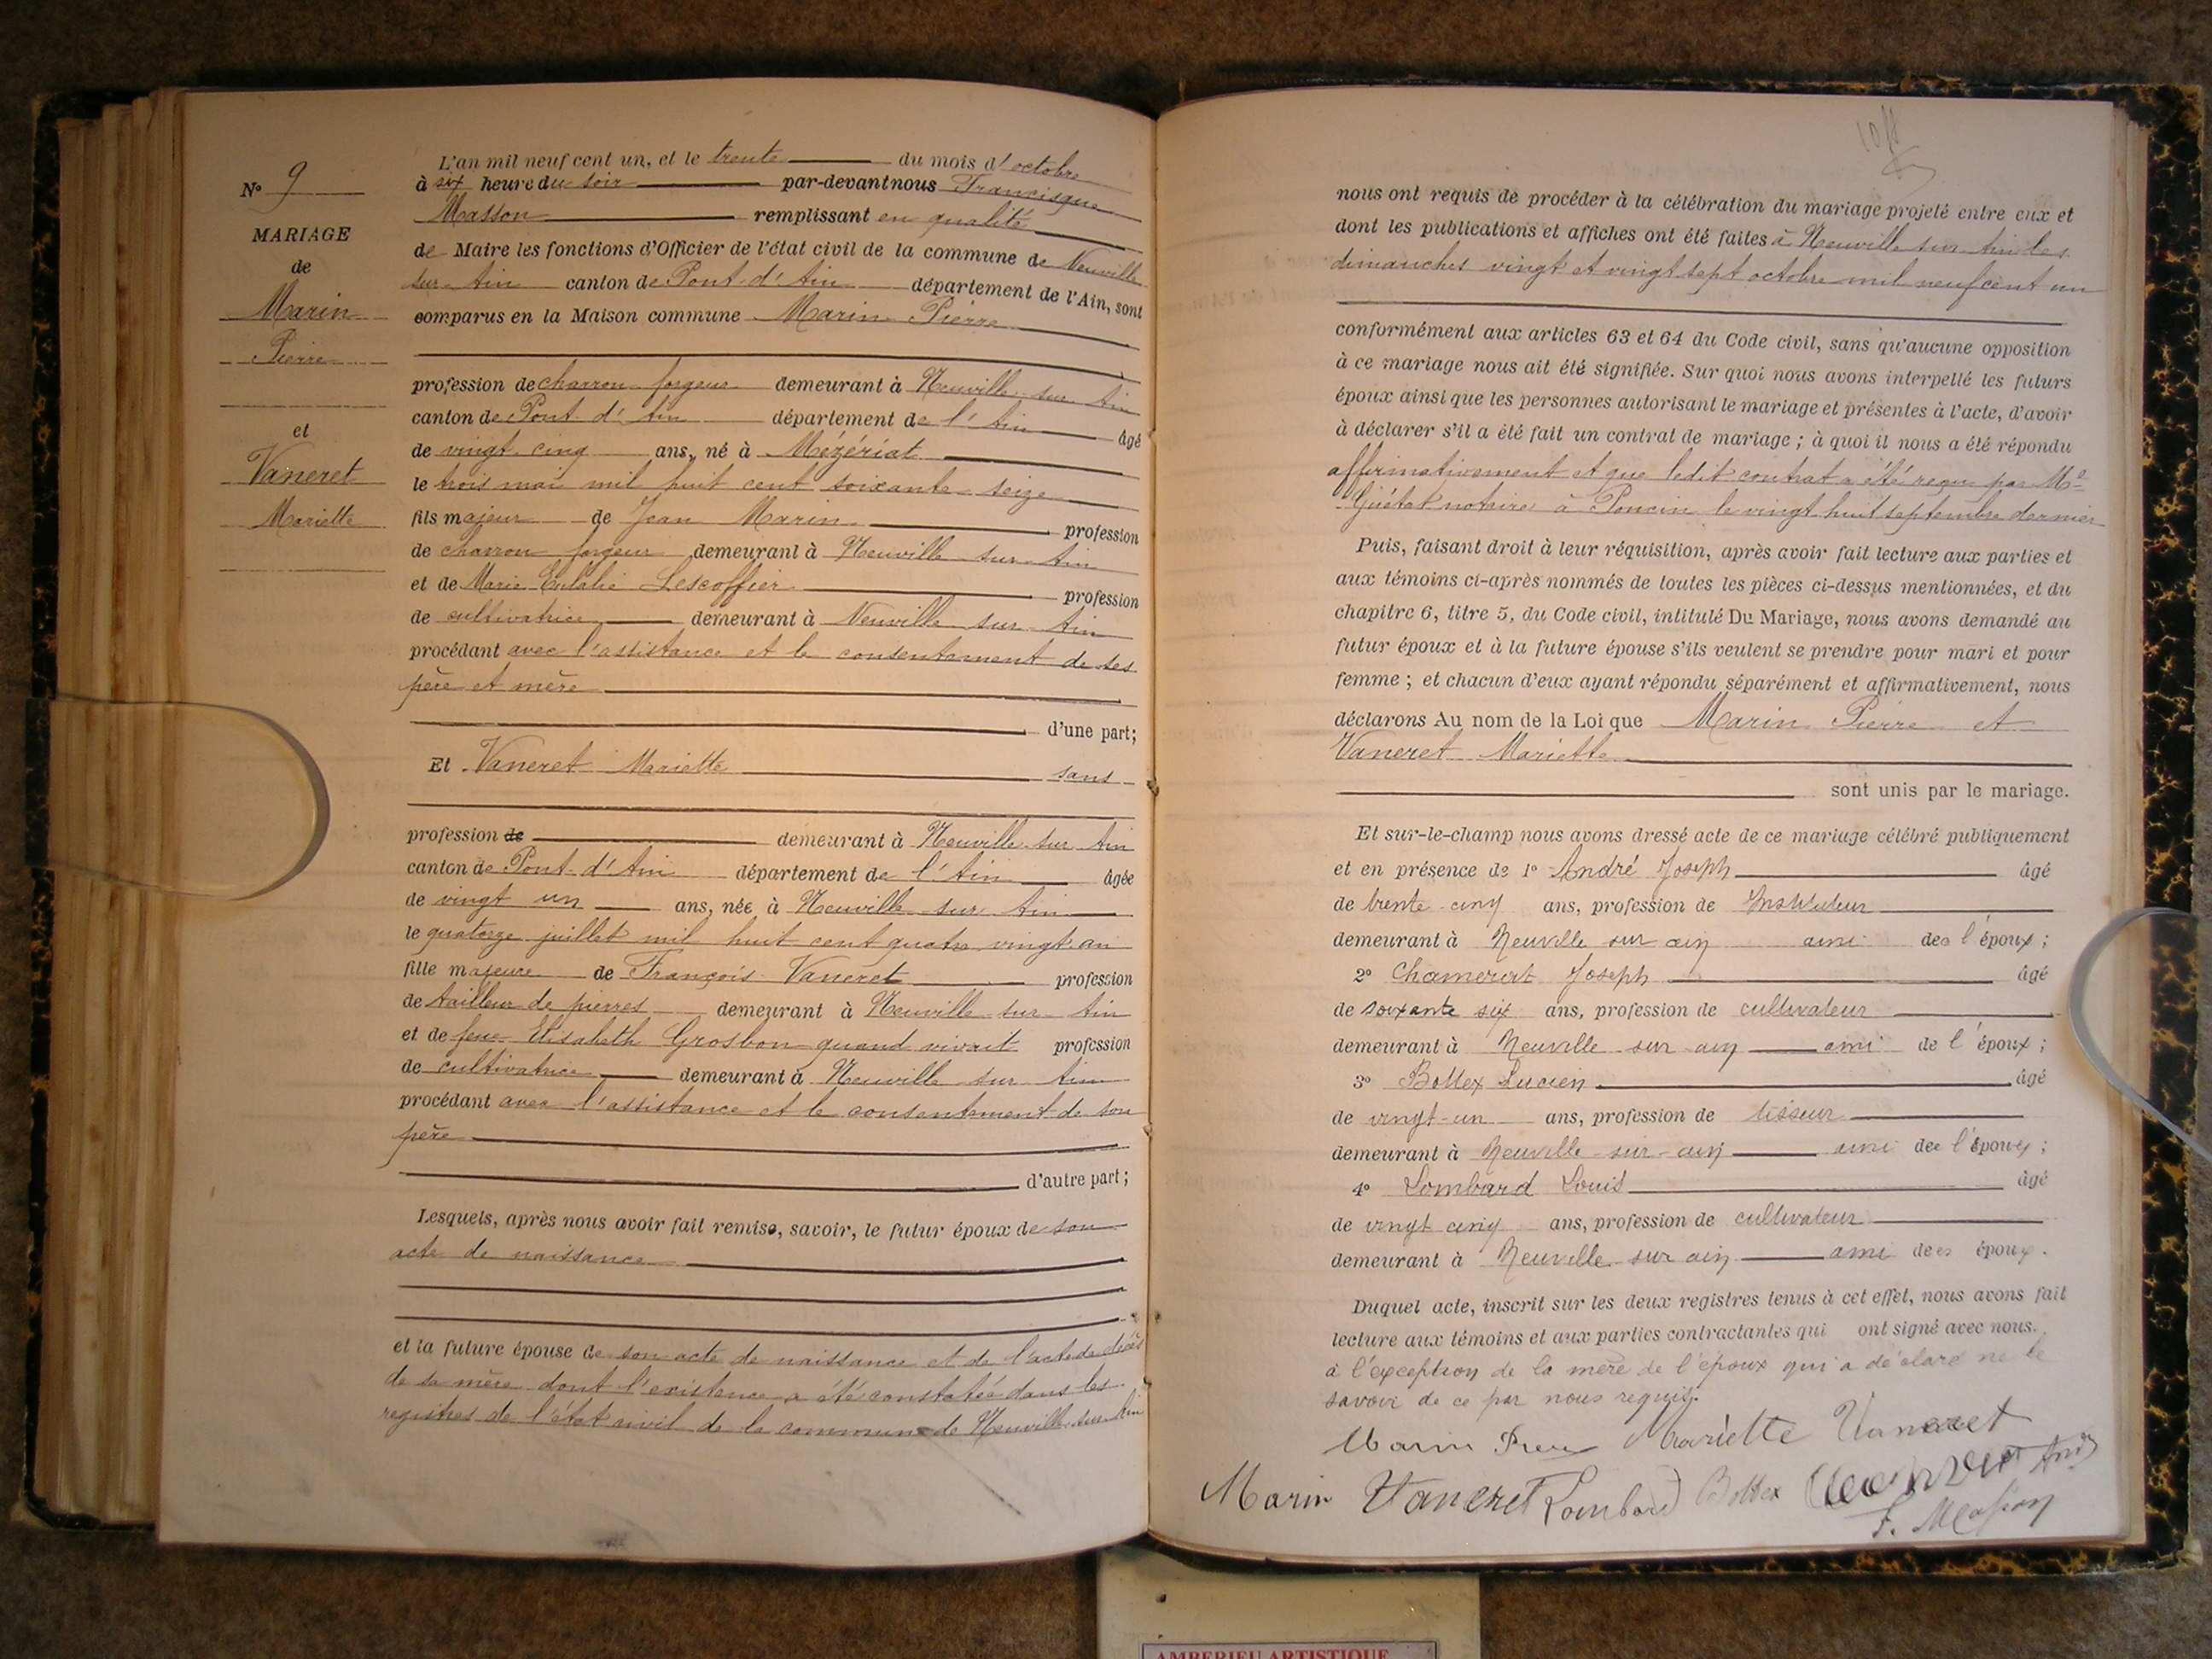 N° 9
MARIAGE
de
Marin
Pierre
et
Vaneret
Mariette
L'an mil neuf cent un, et le trente du mois d'octobre
à six heure du soir par-devant nous Francisque
Masson remplissant en qualité
de Maire les fonctions d'Officier de l'état civil de la commune de Neuville
sur Ain canton de Pont d'Ain département de l'Ain, sont
comparus en la Maison commune Marin Pierre
profession de charron forgeur demeurant à Neuville sur Ain
canton de Pont d'Ain département de l'Ain âgé
de vingt cinq ans, né à Mézériat
le trois mai mil huit cent soixante seize
fils majeur de Jean Marin profession
de charron forgeur demeurant à Neuville sur Ain
et de Marie Eulalie Lescoffier profession
de cultivatrice demeurant à Neuville sur Ain
procédant avec l'assistance et le consentement de ses
père et mère
d'une part;
Et Vaneret Mariette sans
profession de demeurant à Neuville sur Ain
canton de Pont d'Ain département de l'Ain âgée
de vingt un ans, née à Neuville sur Ain
le quatorze juillet mil huit cent quatre vingt an
fille majeure de François Vaneret profession
de tailleur de pierres demeurant à Neuville sur Ain
et de feue Elisabeth Grosbon quand vivait profession
de cultivatrice demeurant à Neuville sur Ain
procédant avec l'assistance et le consentement de son
père
d'autre part;
Lesquels, après nous avoir fait remise, savoir, le futur époux de son
acte de naissance
et la future épouse de son acte de naissance et de l'acte de décès
de sa mère dont l'existence a été constatée dans les
registres de l'état civil de la commune de Neuville sur Ain
nous ont requis de procéder à la célébration du mariage projeté entre eux et
dont les publications et affiches ont été faites à Neuville sur Ain les
dimanches vingt et vingt sept octobre mil neuf cent un
conformément aux articles 63 et 64 du Code civil, sans qu'aucune opposition
à ce mariage nous ait été signifiée. Sur quoi nous avons interpellé les futurs
époux ainsi que les personnes autorisant le mariage et présentes à l'acte, d'avoir
à déclarer s'il a été fait un contrat de mariage ; à quoi il nous a été répondu
affirmativement et que ledit contrat a été reçu par Me
Guétat notaire à Poncin le vingt huit septembre dernier
Puis, faisant droit à leur réquisition, après avoir fait lecture aux parties et
aux témoins ci-après nommés de toutes les pièces ci-dessus mentionnées, et du
chapitre 6, titre 5, du Code civil, intitulé Du Mariage, nous avons demandé au
futur époux et à la future épouse s'ils veulent se prendre pour mari et pour
femme ; et chacun d'eux ayant répondu séparément et affirmativement, nous
déclarons Au nom de la Loi que Marin Pierre et
Vaneret Mariette
sont unis par le mariage.
Et sur-le-champ nous avons dressé acte de ce mariage célébré publiquement
et en présence de 1° André Joseph âgé
de trente cinq ans, profession de Instituteur
demeurant à Neuville sur ain ami de l'époux ;
2° Chamerat Joseph âgé
de soixante six ans, profession de cultivateur
demeurant à Neuville sur ain ami de l'époux ;
3° Bollex Lucien âgé
de vingt-un ans, profession de tisseur
demeurant à Neuville sur ain ami de l'époux ;
4° Lombard Louis âgé
de vingt cinq ans, profession de cultivateur
demeurant à Neuville sur ain ami des époux.
Duquel acte, inscrit sur les deux registres tenus à cet effet, nous avons fait
lecture aux témoins et aux parties contractantes qui ont signé avec nous.
à l'exception de la mère de l'époux qui a déclaré ne le
savoir de ce par nous requis.
Marin Pierre Mariette Vaneret
Marin Vaneret Lombard Bollex André
F. Masson
AMBERIEU ARTISTIQUE